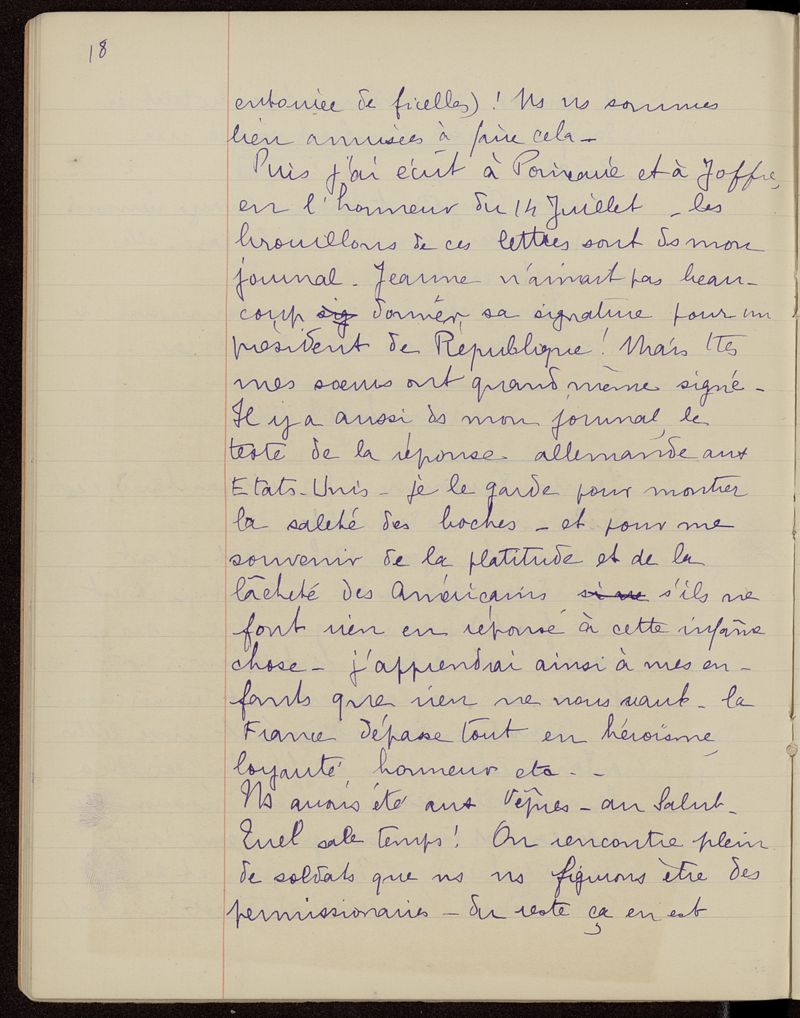 18
entourée de ficelles) ! Ns ns sommes
bien amusées à faire cela –
Puis j'ai écrit à Poincaré et à Joffre,
en l'honneur du 14 Juillet – les
brouillons de ces lettres sont ds mon
journal – Jeanne n'aimait pas beau-
coup sig donner sa signature pour un
président de République ! Mais ttes
mes sœurs ont quand même signé –
Il y a aussi ds mon journal, le
texte de la réponse allemande aux
Etats-Unis – je le garde pour montrer
la saleté des boches – et pour me
souvenir de la platitude et de la
lâcheté des Américains si ne s'ils ne
font rien en réponse à cette infâme
chose – j'apprendrai ainsi à mes en-
fants que rien ne nous vaut – la
France dépasse tout en héroïsme,
loyauté, honneur etc . –
Ns avons été aux Vêpres – au Salut –
Quel sale temps ! On rencontre plein
de soldats que ns ns figurons être des
permissionaires – du reste ça en est